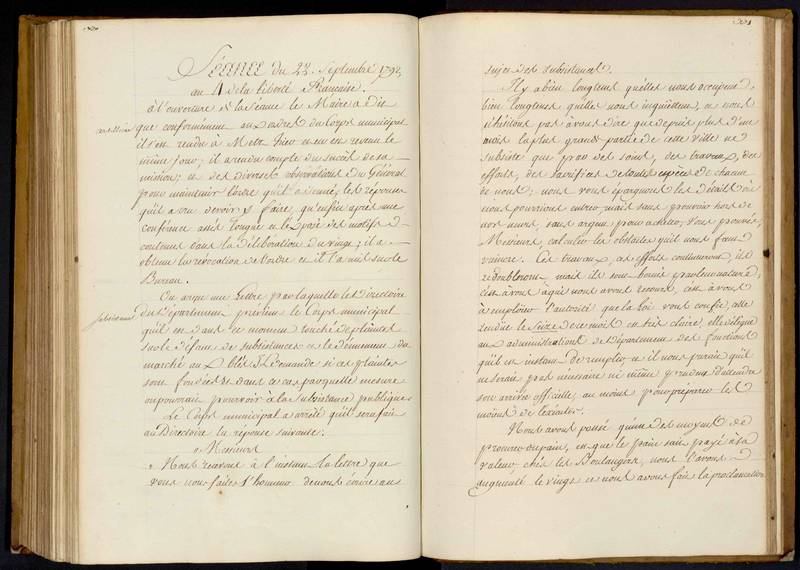 Séance du 22 Septembre 1792,
an 4 de la liberté Française.
à l'ouverture de la séance le Maire a dit
que conformément aux ordres du Corps municipal
il s'est rendu à Metz hier et en est revenu le
même jour; il a rendu compte du succès de sa
mission; et des diverses observations du Général
pour maintenir l'ordre qu'il a donné, les réponses
qu'il a cru devoir y faire, qu'enfin après une
conférence assés longue et l'exposé des motifs
contenus dans la délibération du vingt; il a
obtenu la révocation de l'ordre et il l'a mis sur le
Bureau.
subsistances
On a reçu une Lettre par laquelle le Directoire
du Département prévient le Corps municipal
qu'il est dans ce moment touché de plaintes
sur le défaut de subsistances et le dénuement du
marché au bled & demande si ces plaintes
sont fondées & dans ce cas par quelle mesure
on pourrait pourvoir à la subsistance publique
Le Corps municipal a arrêté qu'il seroit fait
au Directoire la réponse suivante.
» Messieurs
» Nous recevons à l'instant la lettre que
vous nous faites l'honneur de nous écrire au
331
sujet des subsistances.
Il y a bien longtems qu'elles nous occupent,
bien longtems qu'elles nous inquiettent, et nous
n'hésitons pas à vous dire que depuis plus d'un
mois la plus grande partie de cette ville ne
subsiste que par des soins, des travaux, des
efforts, des sacrifices de toutes espèces de chacun
de nous; nous vous épargnons les détails où
nous pourrions entrer, mais sans pouvoir hors de
nos murs, sans argent pour acheter, vous pouvés,
Messieurs, calculer les obstacles qu'il nous faut
vaincre. Ces travaux, ces efforts continueront, ils
redoubleront, mais ils sont bornés par leur nature;
c'est à vous à qui nous avons recours, c'est à vous
à employer l'autorité que la loi vous confie, elle
rendue le seize de ce mois est très claire, elle délègue
aux administrations de Département des fonctions
qu'il est instant de remplir et il nous paraît qu'il
ne serait pas nécessaire ni même prudent d'attendre
son arrivée officielle, au moins pour préparer les
moiens de l'exécuter.
Nous avons pensé qu'un des moyens de
procurer du pain, est que le pain soit payé à sa
valeur chés les Boulangers, nous l'avons
augmenté le vingt et nous avons fait la proclamation